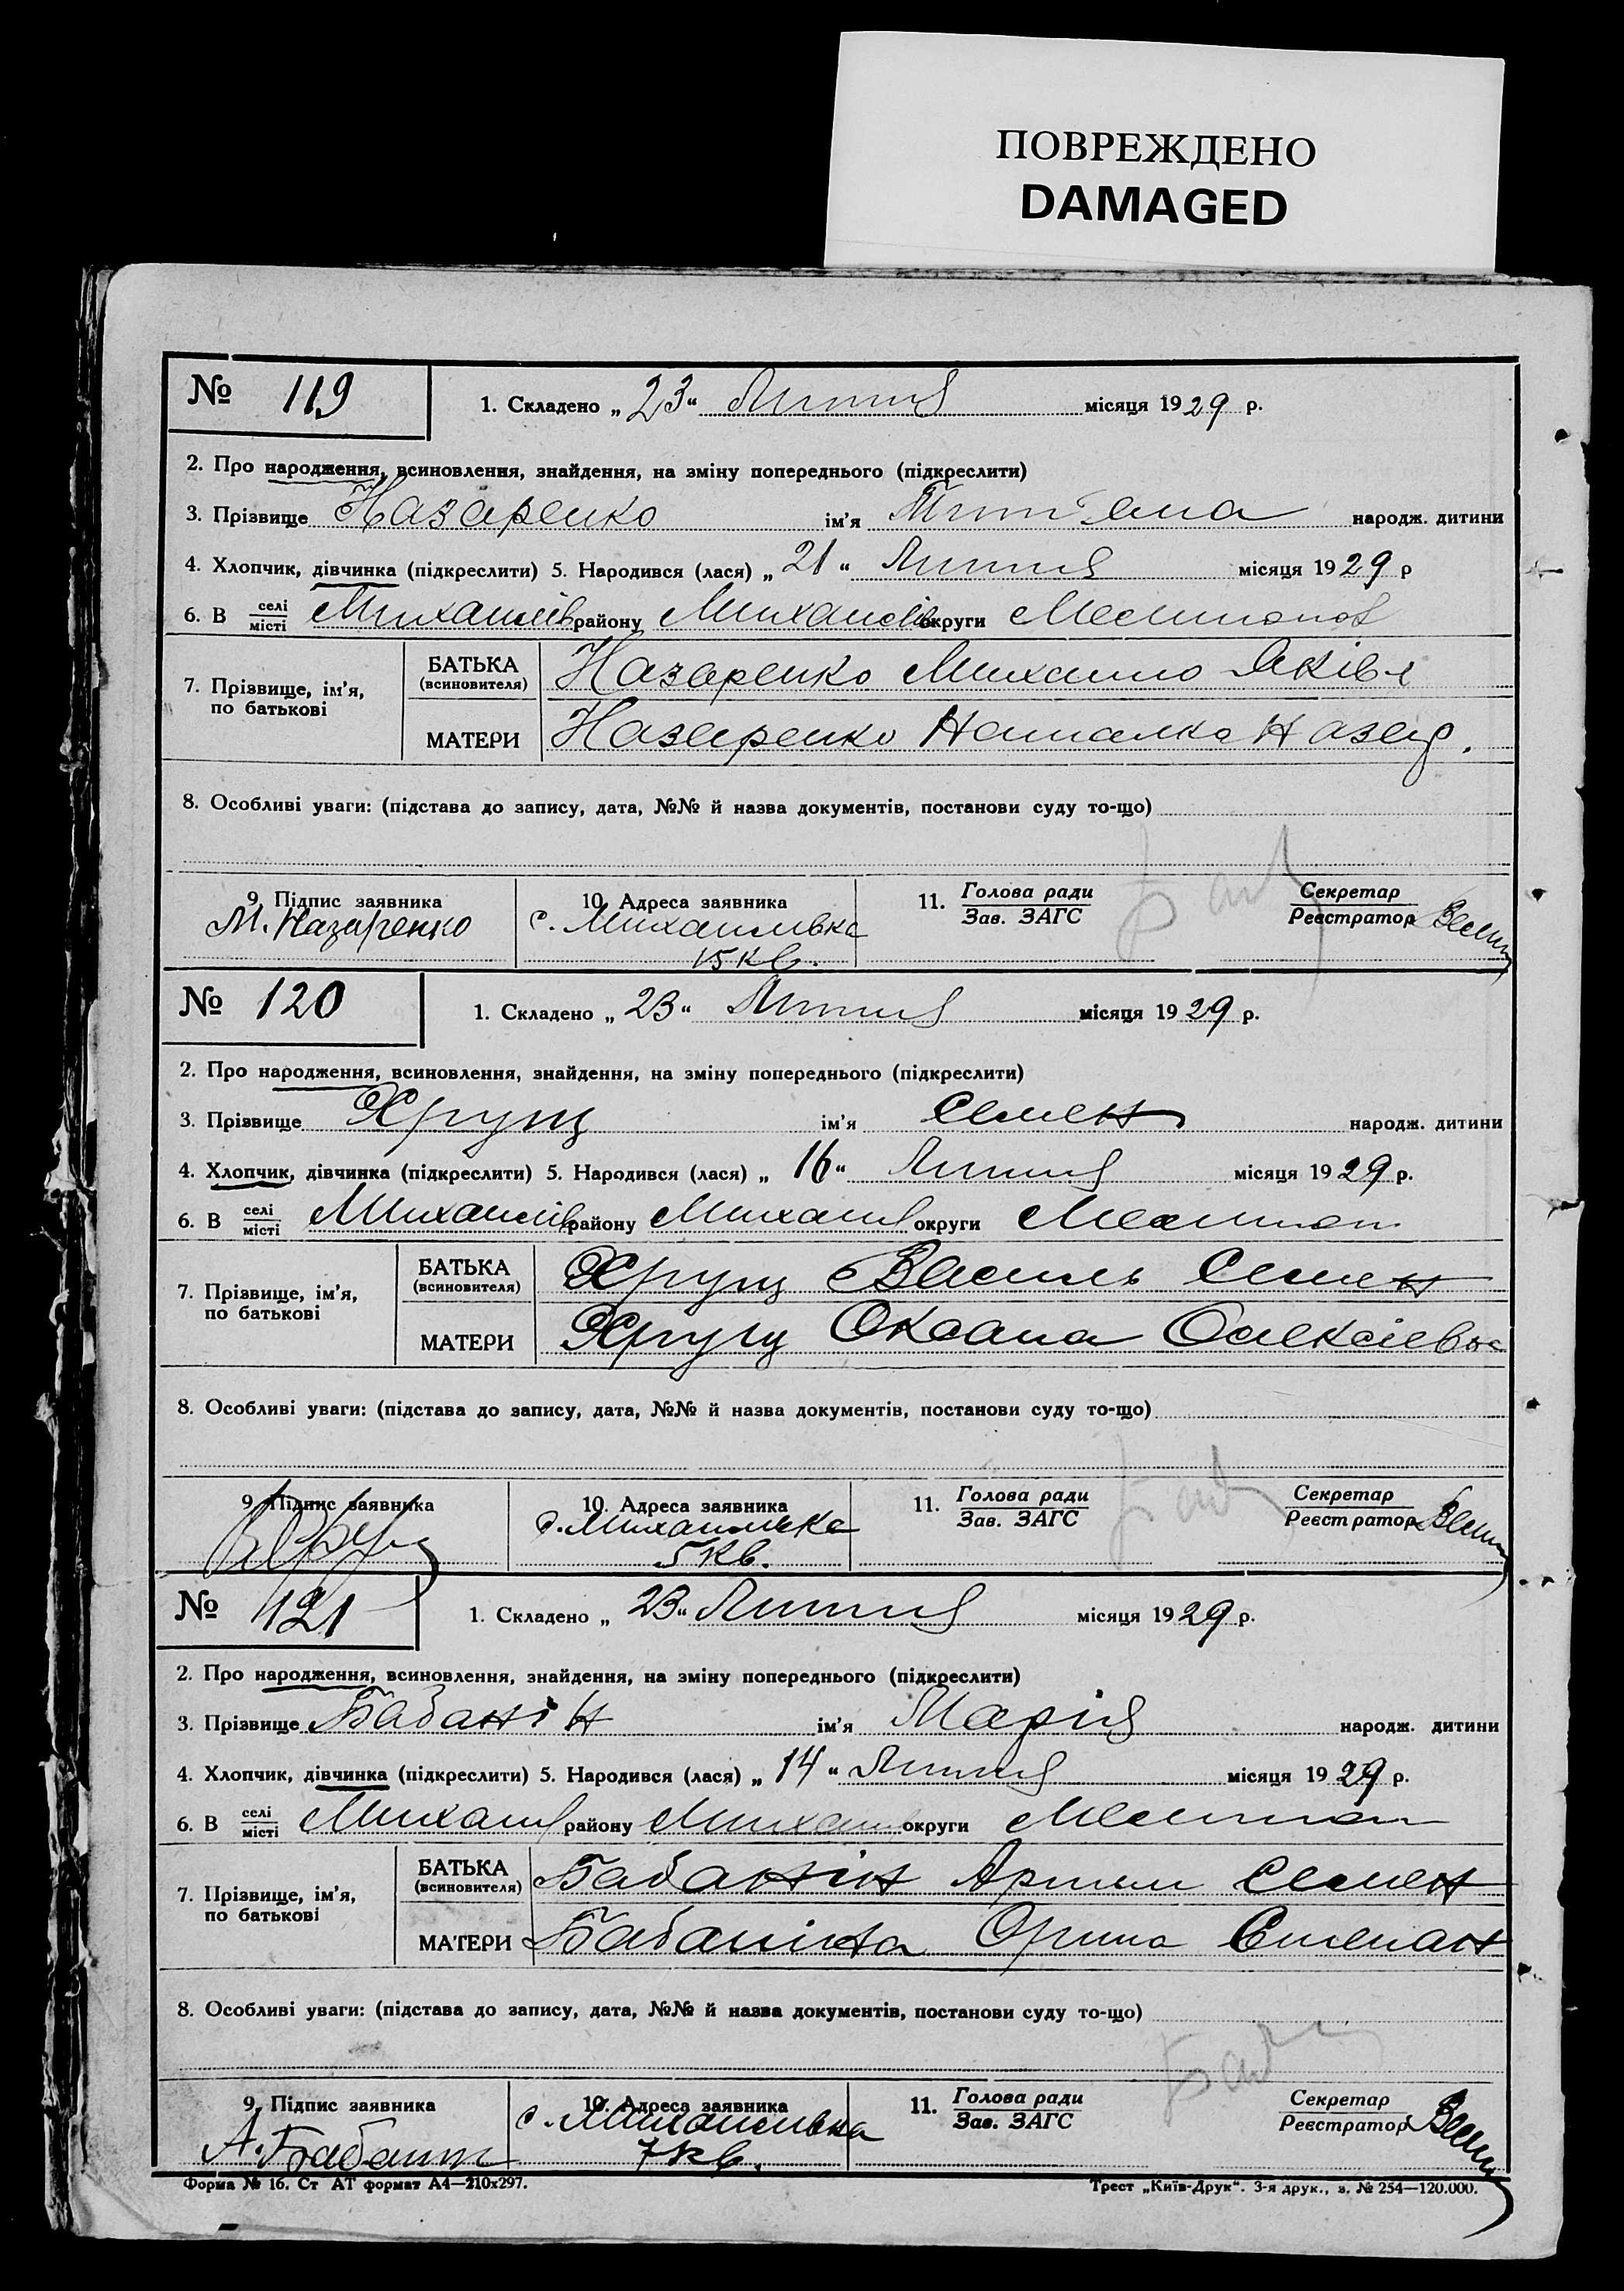 ПОВРЕЖДЕНО
DAMAGED
№ 119
1. Складено „ 23 “ Липня місяця 1929 р.
2. Про народження, всиновлення, знайдення, на зміну попереднього (підкреслити)
3. Прізвище Назаренко ім’я Тит'яна народж. дитини
4. Хлопчик, дівчинка (підкреслити) 5. Народився (лася) „ 21 “ Липня місяця 1929 р
6. В селі місті Михайлів району Михайлів округи Мелитопол
7. Прізвище, ім’я, по батькові
БАТЬКА (всиновителя) Назаренко Михайло Яківл
МАТЕРИ Назаренко Наталка Назар.
8. Особливі уваги: (підстава до запису, дата, №№ й назва документів, постанови суду то-що)
9. Підпис заявника 10. Адреса заявника 11. Голова ради Зав. ЗАГС Секретар Реєстратор
М. Назаренко с. Михайлівка
15 кв.
№ 120
1. Складено „ 23 “ Липня місяця 1929 р.
2. Про народження, всиновлення, знайдення, на зміну попереднього (підкреслити)
3. Прізвище Хрущ ім’я Семен народж. дитини
4. Хлопчик, дівчинка (підкреслити) 5. Народився (лася) „ 16 “ Липня місяця 1929 р.
6. В селі місті Михайлів району Михайл округи Мелитоп
7. Прізвище, ім’я, по батькові
БАТЬКА (всиновителя) Хрущ Василь Семен
МАТЕРИ Хрущ Оксана Олексіевна
8. Особливі уваги: (підстава до запису, дата, №№ й назва документів, постанови суду то-що)
9. Підпис заявника 10. Адреса заявника 11. Голова ради Зав. ЗАГС Секретар Реєстратор
с. Михайлівка
5 кв.
№ 121
1. Складено „ 23 “ Липня місяця 1929 р.
2. Про народження, всиновлення, знайдення, на зміну попереднього (підкреслити)
3. Прізвище Бабанін ім’я Марія народж. дитини
4. Хлопчик, дівчинка (підкреслити) 5. Народився (лася) „ 14 “ Липня місяця 1929 р.
6. В селі місті Михайл району Михайл округи Мелитоп
7. Прізвище, ім’я, по батькові
БАТЬКА (всиновителя) Бабанін Артем Семен
МАТЕРИ Бабаніна Орина Степан
8. Особливі уваги: (підстава до запису, дата, №№ й назва документів, постанови суду то-що)
9. Підпис заявника 10. Адреса заявника 11. Голова ради Зав. ЗАГС Секретар Реєстратор
А. Бабанин с. Михайлівка
7 кв.
Форма № 16. Ст АТ формат А4—210х297. Трест „Київ-Друк“. 3-я друк., з. № 254—120.000.